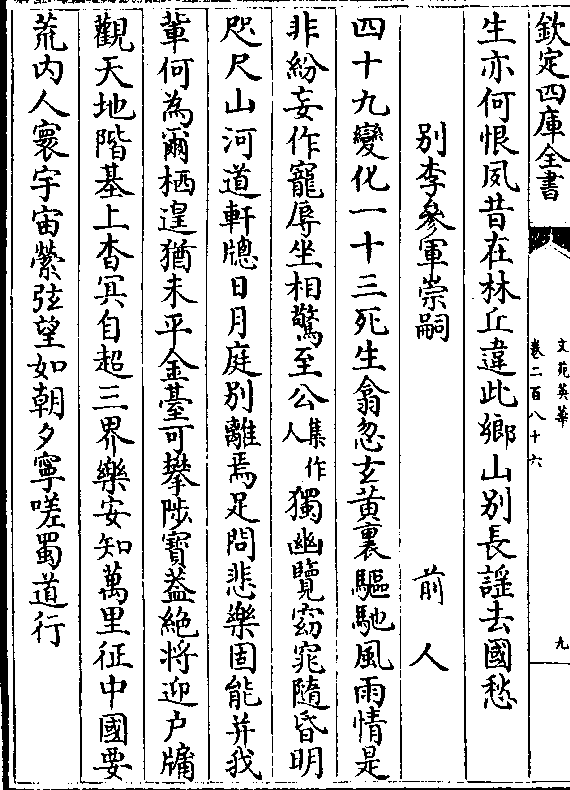 欽定四庫全書
文苑英華
卷二百八十六
九
生亦何恨夙昔在林丘違此鄉山别長謡去國愁
别李參軍崇嗣 前人
四十九變化一十三死生翕忽玄黄裏驅馳風雨情是
非紛妄作寵辱坐相驚至公集作人獨幽覽窈窕隨昏明
咫尺山河道軒牕日月庭别離焉足問悲樂固能并我
輩何為爾栖遑猶未平金臺可攀陟寶葢絶將迎户牖
觀天地階基上杳冥自超三界樂安知萬里征中國要
荒内人寰宇宙縈弦望如朝夕寧嗟蜀道行